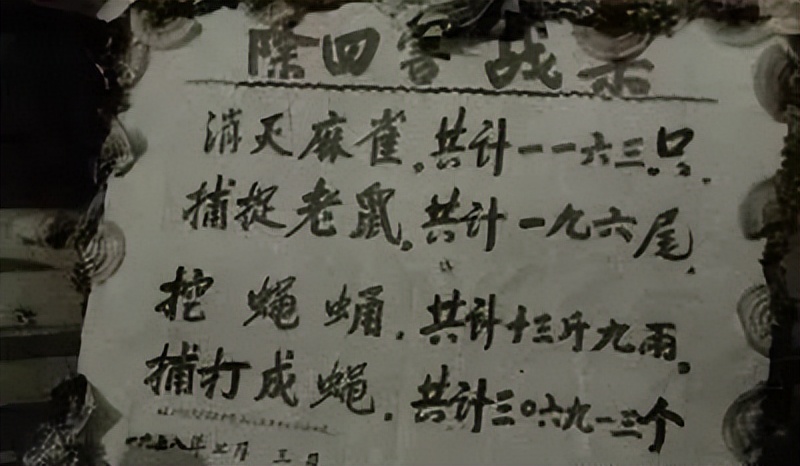 除四害战示
消灭麻雀。共计一一六三。只.
捕捉老鼠。共计一九六尾.
挖蝇蛹.共计十三斤九雨.
捕打成蝇.共计三〇六九一三个
一九五八年 月三日